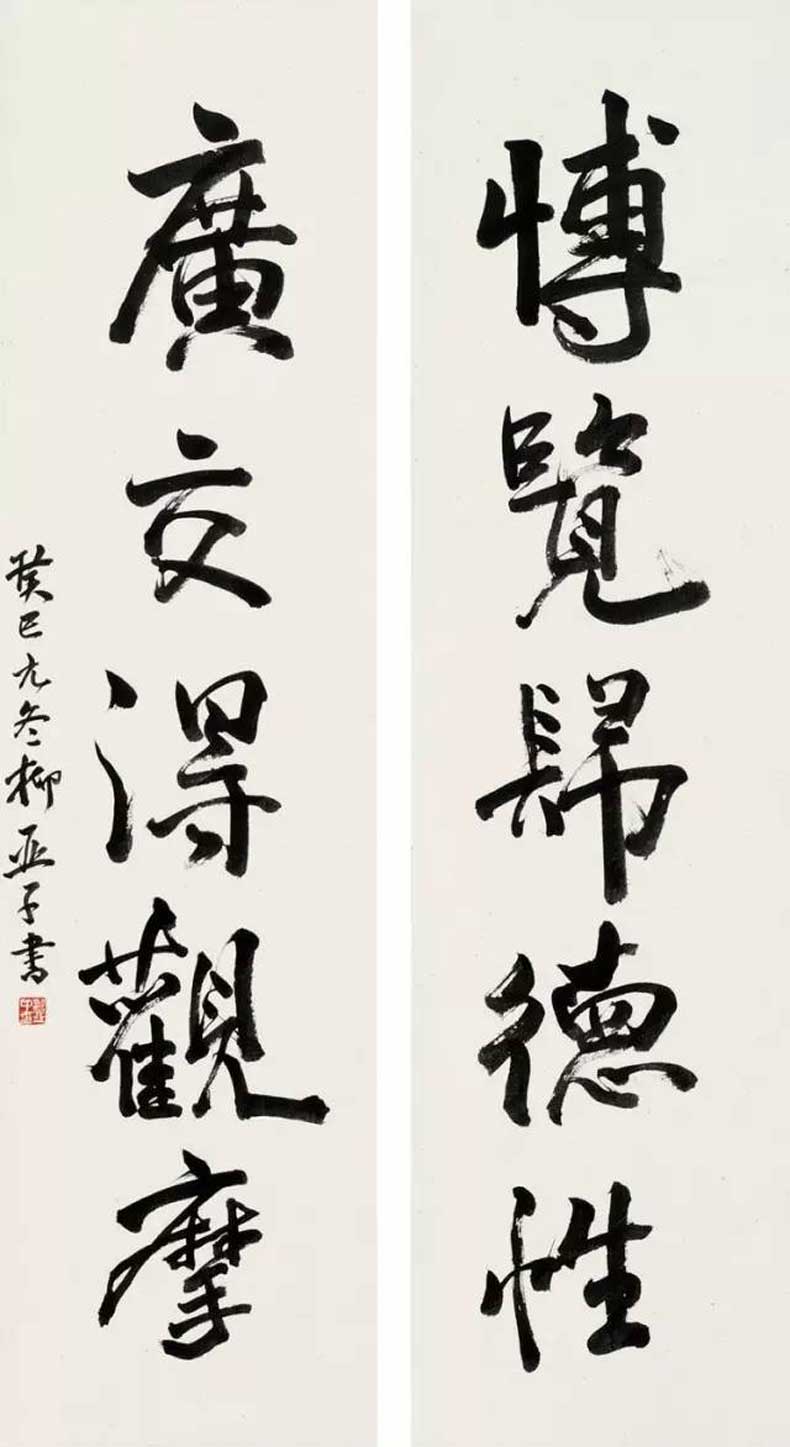 愽覽歸德性
廣交得觀摩
癸巳元冬柳亞子書